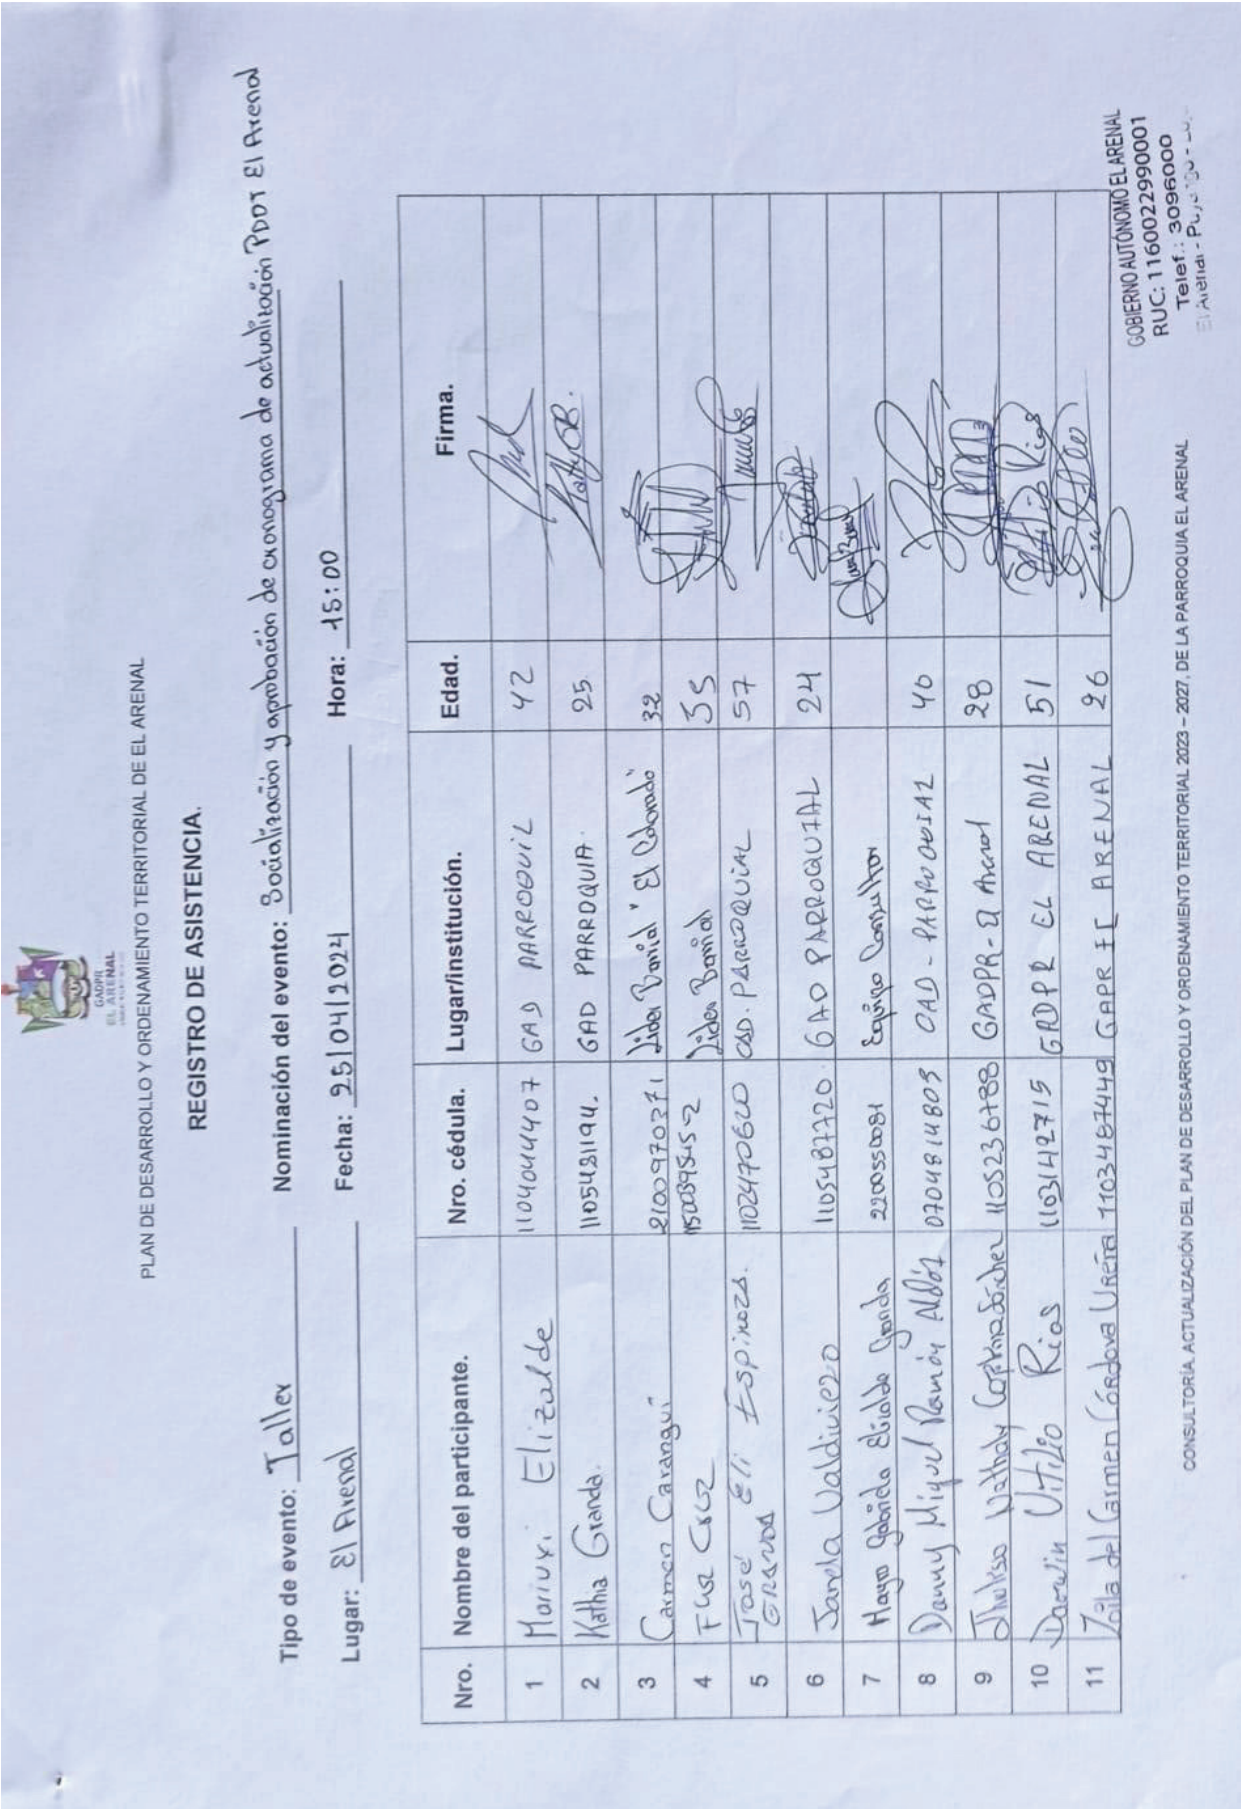 GADPR
EL ARENAL
PLAN DE DESARROLLO Y ORDENAMIENTO TERRITORIAL DE EL ARENAL
REGISTRO DE ASISTENCIA.
Tipo de evento: Taller Nominación del evento: Socialización y aprobación de cronograma de actualización PDOT El Arenal
Lugar: El Arenal Fecha: 25/04/2024 Hora: 15:00
Nro. Nombre del participante. Nro. cédula. Lugar/institución. Edad. Firma.
1 Mariuxi Elizalde 1104044407 GAD PARROQUIL 42
2 Kathia Granda. 1105481194. GAD PARROQUIA. 25.
3 Carmen Carangui 2100970371 Lider Barrial "El Colorado" 32
4 Cruz 1500395452 Lider Barrial 35
5 José Eli Espinoza. Granda 1102470620 GAD. PARROQUIAL 57
6 Janela Valdiviezo 1105487720. GAD PARROQUIAL 24
7 Mayra Gabriela Elizalde Granda 2200550081 Equipo Consultor
8 Danny Miguel Ramón 0704814809 GAD - PARROQUIAL 40
9 Nathaly Sánchez 1105236788 GADPR - El Arenal 28
10 Darwin Utilio Rios 1103142715 GADPR EL ARENAL 51
11 Zoila del Carmen Córdova Ureña 1103487449 GAPR EL ARENAL 26
GOBIERNO AUTÓNOMO EL ARENAL
RUC: 1160022990001
Telef.: 3096000
El Arenal - Puyango -
CONSULTORÍA, ACTUALIZACIÓN DEL PLAN DE DESARROLLO Y ORDENAMIENTO TERRITORIAL 2023 – 2027, DE LA PARROQUIA EL ARENAL